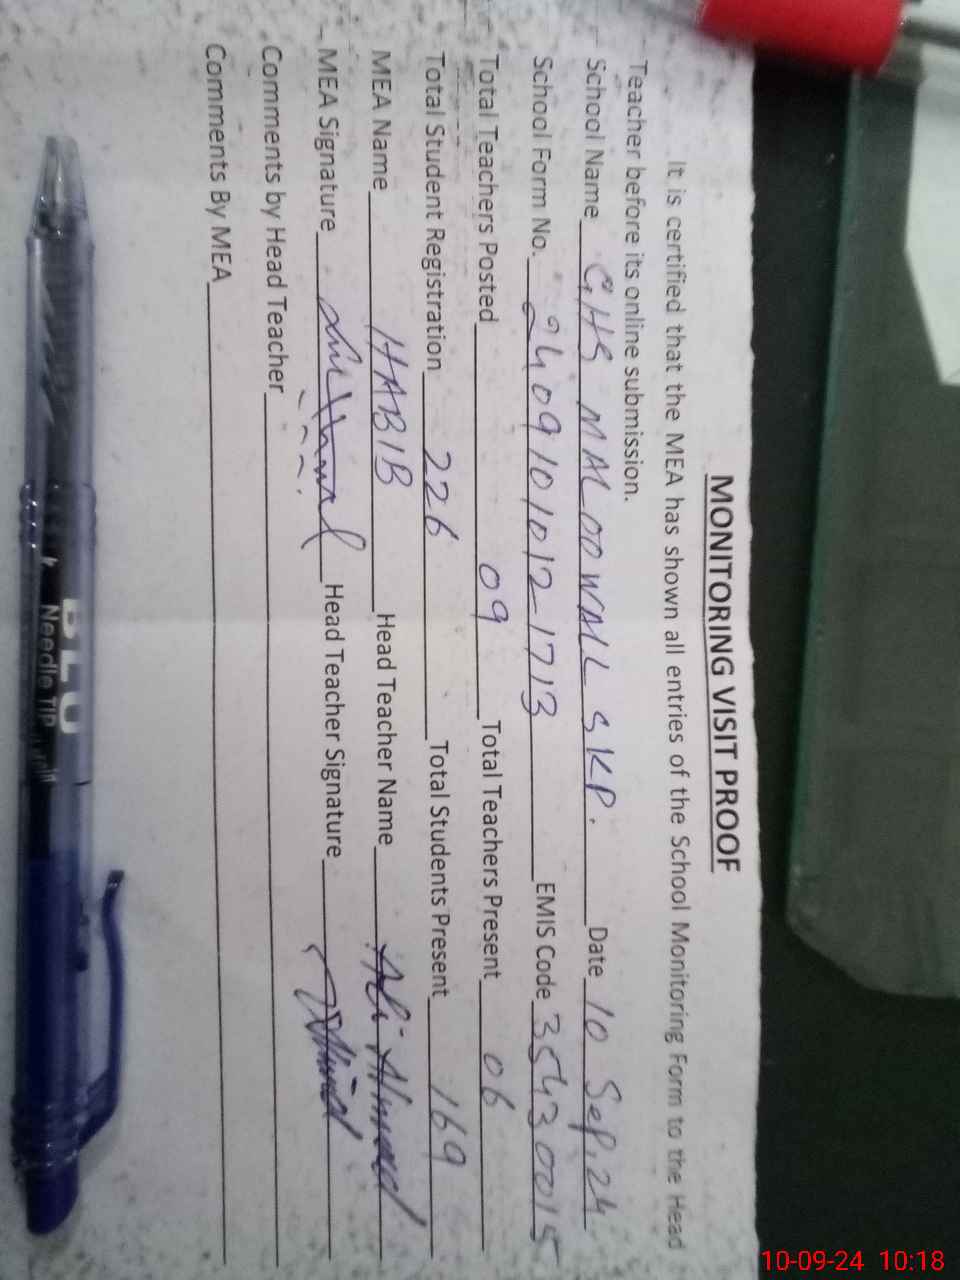 MONITORING VISIT PROOF
It is certified that the MEA has shown all entries of the School Monitoring Form to the Head
Teacher before its online submission.
School Name GHS MALOOWALL SKP. Date 10 Sep, 24
School Form No. 2409101012-1713 EMIS Code 35430015
Total Teachers Posted 09 Total Teachers Present 06
Total Student Registration 226 Total Students Present 169
MEA Name HABIB Head Teacher Name Ali Ahmad
MEA Signature Head Teacher Signature
Comments by Head Teacher
Comments By MEA
Needle TIP
10-09-24 10:18